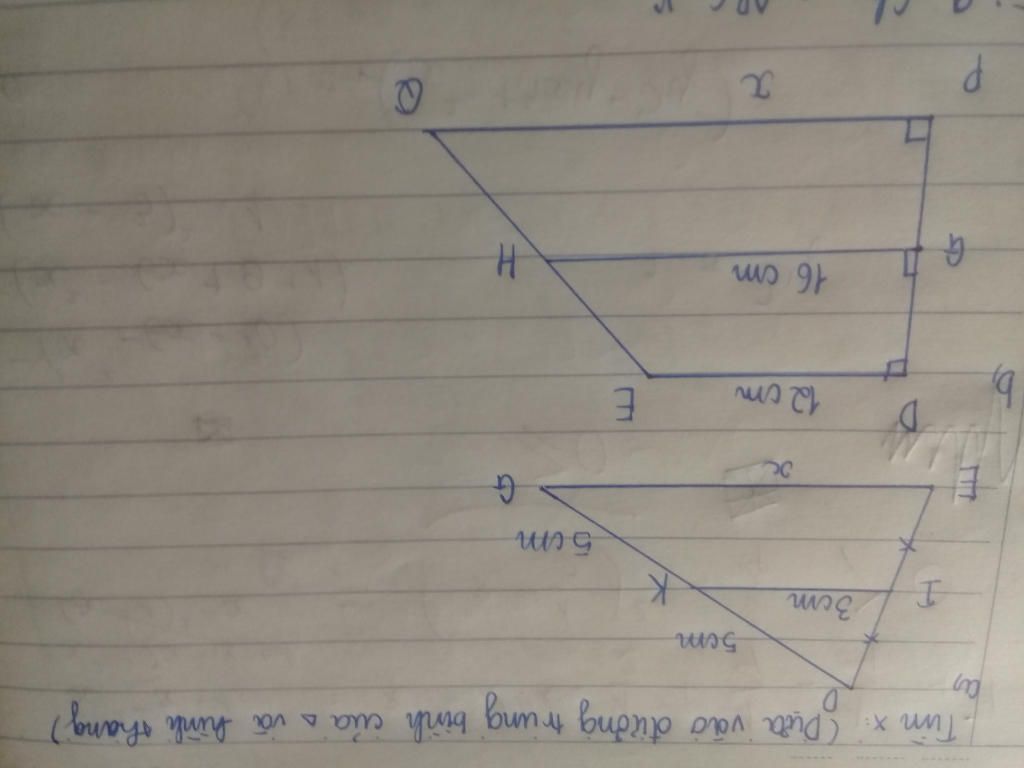 Tìm x: (Dựa vào đường trung bình của △ và hình thang)
a,
D
5cm
I
3cm
K
5cm
E
x
G
b,
D
12 cm
E
G
16 cm
H
P
x
Q